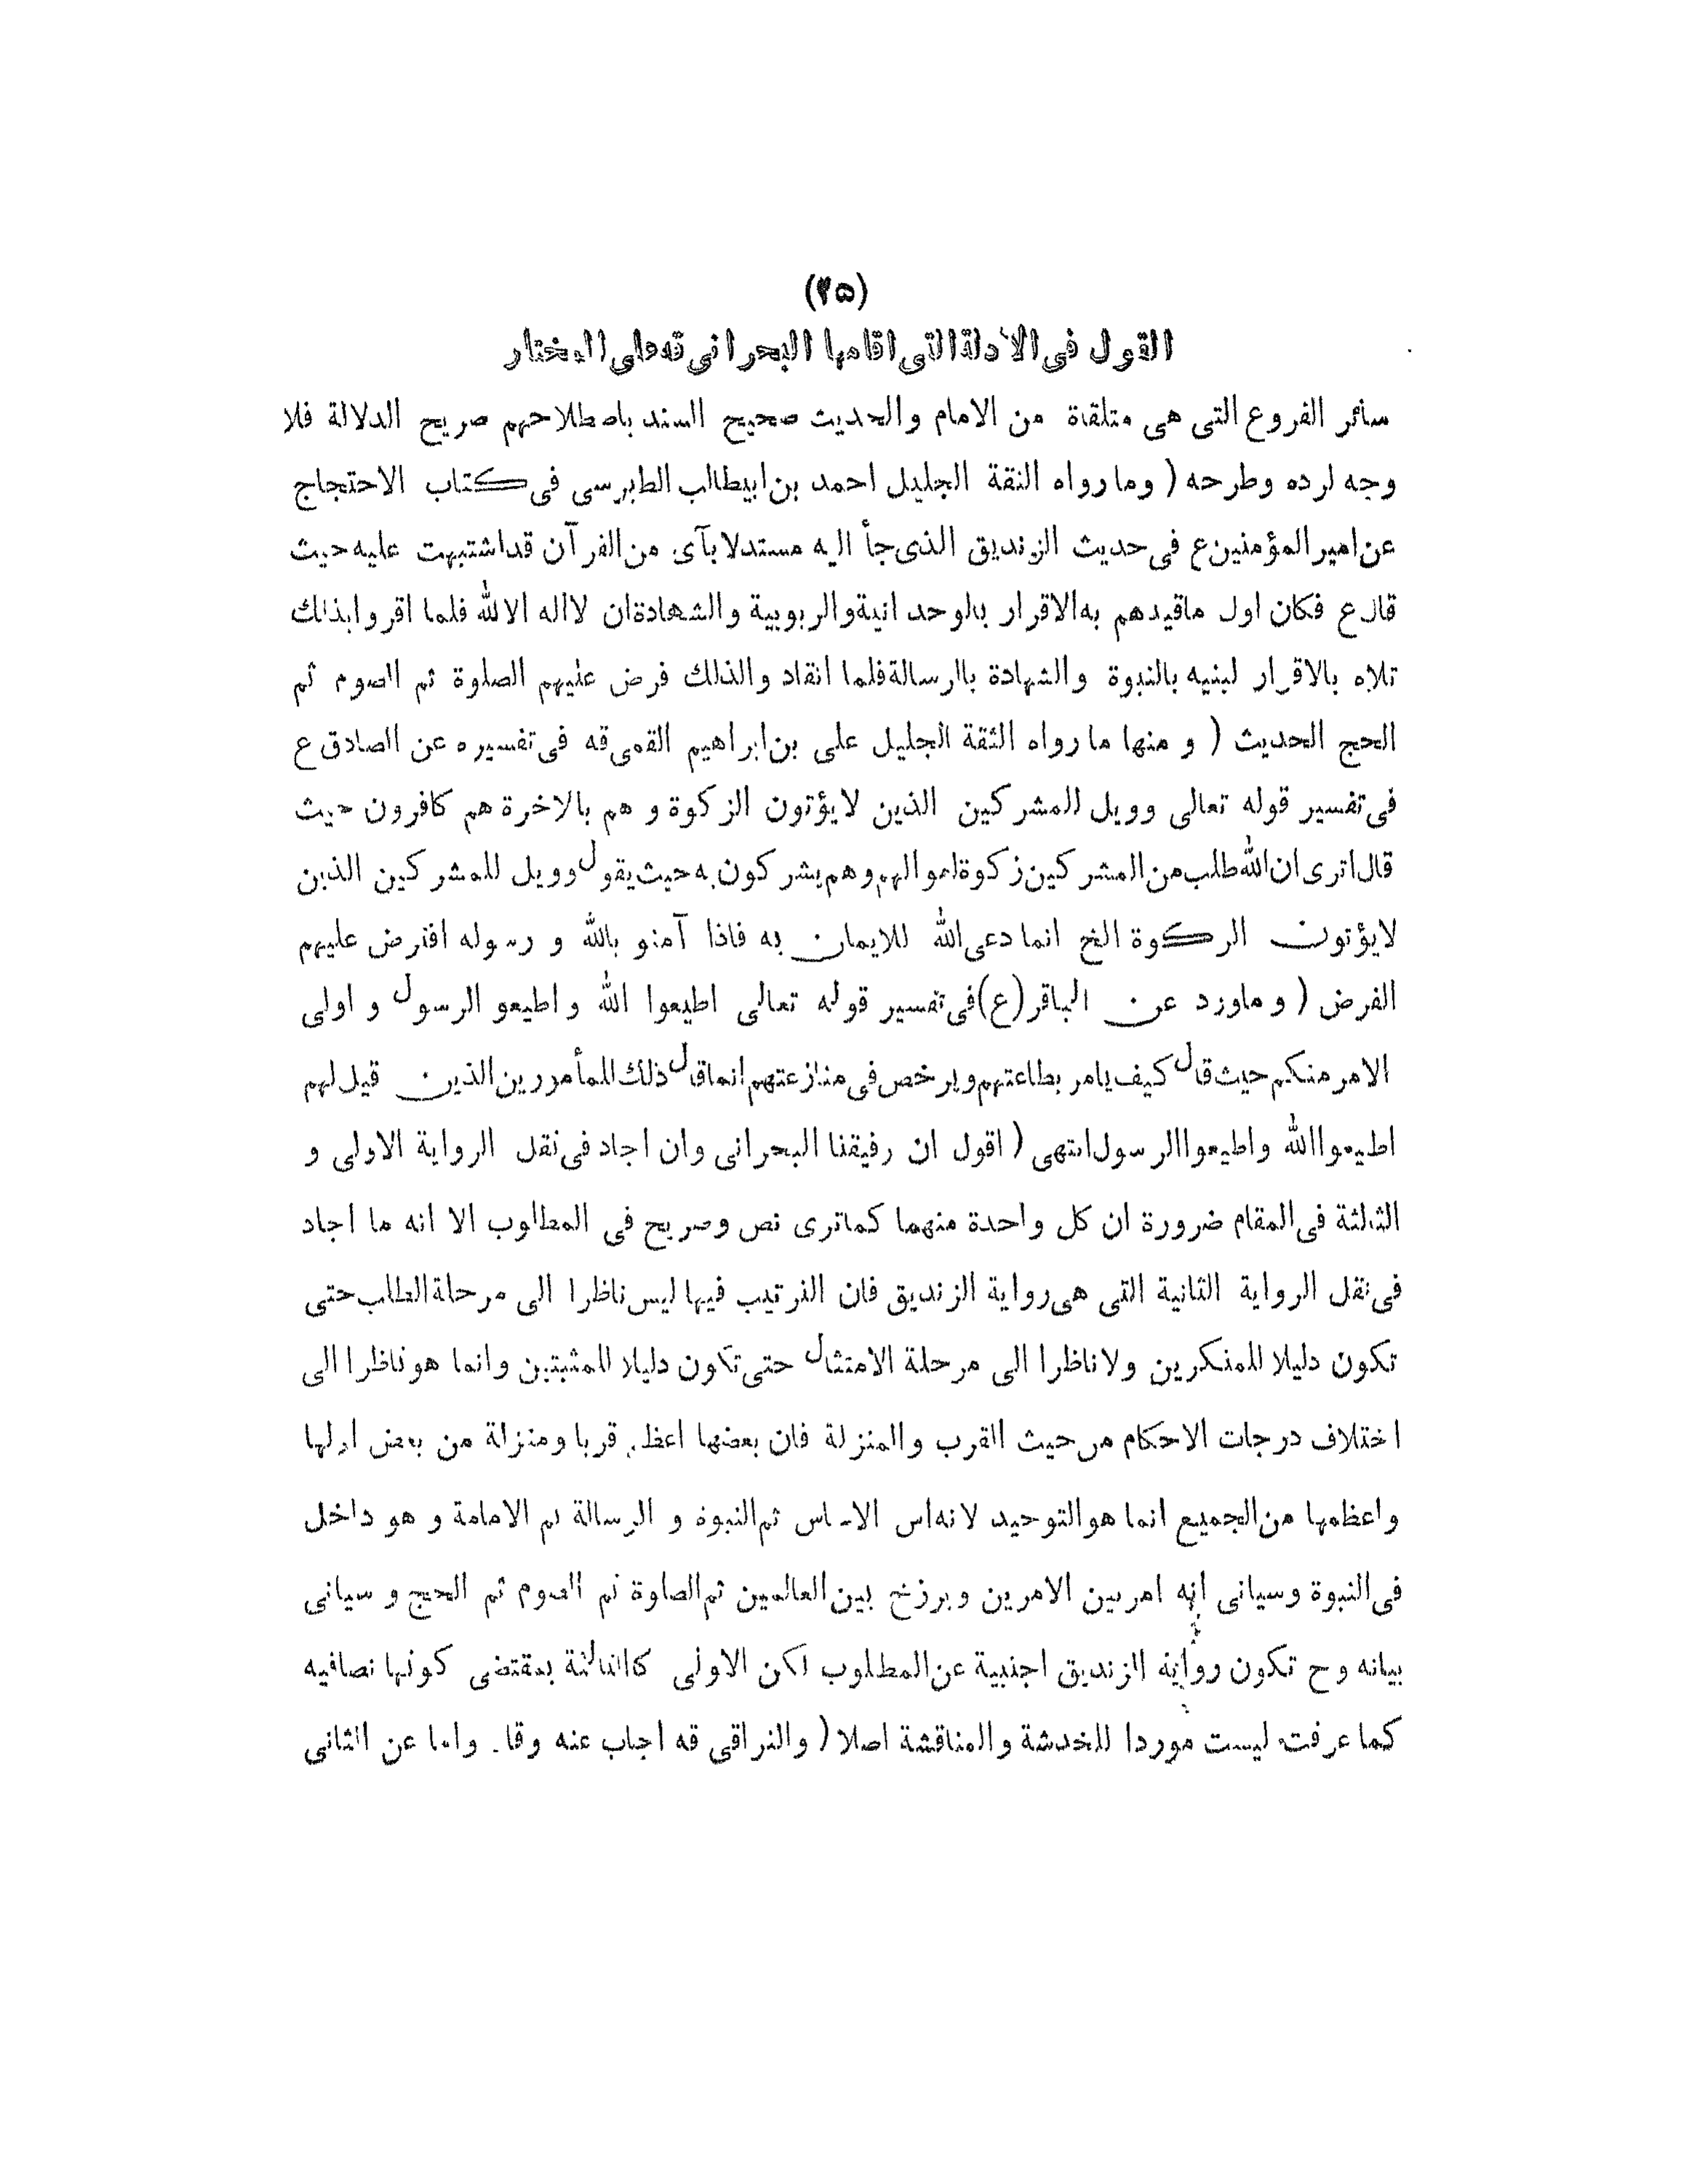 (۴۵)
القول فى الادلة التى اقامها البحرانى قه على المختار
سائر الفروع التى هى متلقاة من الامام والحديث صحيح السند باصطلاحهم صريح الدلالة فلا
وجه لرده وطرحه ( وما رواه الثقة الجليل احمد بن ابيطالب الطبرسى فى كتاب الاحتجاج
عن امير المؤمنين ع فى حديث الزنديق الذى جأ اليه مستدلا بآى من القرآن قد اشتبهت عليه حيث
قال ع فكان اول ما قيدهم به الاقرار بالوحدانية والربوبية والشهادة ان لا اله الا الله فلما اقروا بذلك
تلاه بالاقرار لبنيه بالنبوة والشهادة باارسالة فلما انقاد والذلك فرض عليهم الصلوة ثم الصوم ثم
الحج الحديث ( و منها ما رواه الثقة الجليل على بن ابراهيم القمى قه فى تفسيره عن الصادق ع
فى تفسير قوله تعالى وويل للمشركين الذين لا يؤتون الزكوة و هم بالاخرة هم كافرون حيث
قال اترى ان الله طلب من المشركين زكوة اموالهم وهم يشركون به حيث يقول وويل للمشركين الذين
لا يؤتون الركوة الخ انما دعى الله للايمان به فاذا آمنو بالله و رسوله افترض عليهم
الفرض ( و ماورد عن الباقر (ع) فى تفسير قوله تعالى اطيعوا الله و اطيعو الرسول و اولى
الامر منكم حيث قال كيف يامر بطاعتهم ويرخص فى منازعتهم انما قال ذلك للمأمررين الذين قيل لهم
اطيعوا الله واطيعوا الرسول انتهى ( اقول ان رفيقنا البحرانى وان اجاد فى نقل الرواية الاولى و
الثالثة فى المقام ضرورة ان كل واحدة منهما كماترى نص وصريح فى المطلوب الا انه ما اجاد
فى نقل الرواية الثانية التى هى رواية الزنديق فان الترتيب فيها ليس ناظرا الى مرحلة الطلب حتى
تكون دليلا للمنكرين ولا ناظرا الى مرحلة الامتثال حتى تكون دليلا للمثبتين وانما هو ناظرا الى
اختلاف درجات الاحكام من حيث القرب والمنزلة فان بعضها اعظم قربا ومنزلة من بعض اولها
واعظمها من الجميع انما هو التوحيد لانه اس الاساس ثم النبوة و الرسالة ثم الامامة و هو داخل
فى النبوة وسيانى انه امر بين الامرين وبرزخ بين العالمين ثم الصلوة ثم الصوم ثم الحج و سيانى
بيانه و ح تكون رواية الزنديق اجنبية عن المطلوب لكن الاولى كالثالثة بمقتضى كونها نصافيه
كما عرفت ليست موردا للخدشة والمناقشة اصلا ( والنراقى قه اجاب عنه وقا. واما عن الثانى